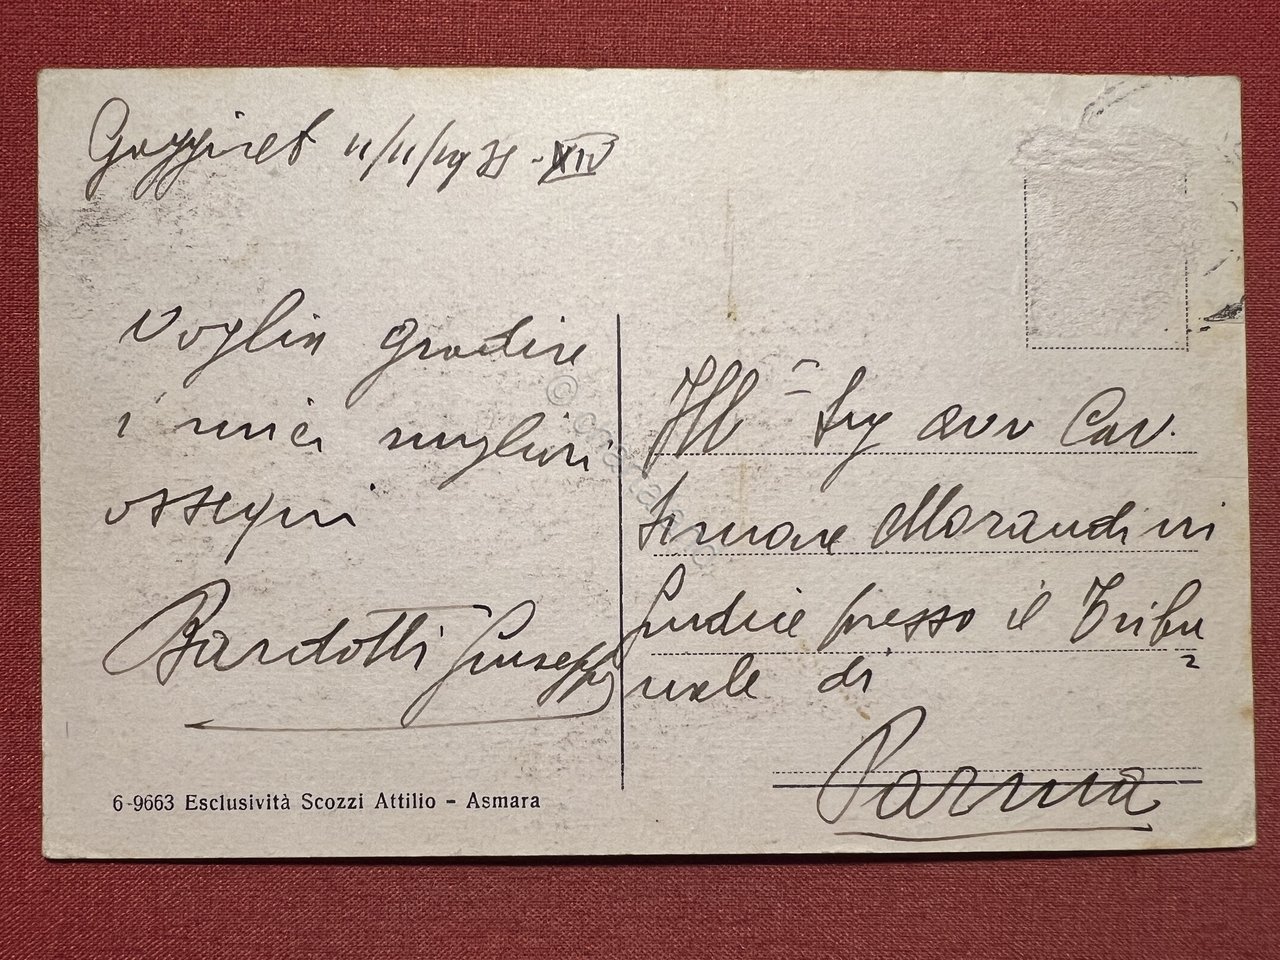 11/11/1935 - XIV
Voglia gradire
i miei migliori
ossequi
Bardotti Giuseppe
6-9663 Esclusività Scozzi Attilio - Asmara
Ill Sig avv Cav.
Simone Morandini
Giudice presso il Tribu
nale di
Parma